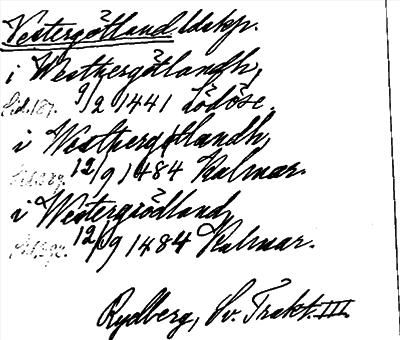 Vestergötland ldskp.
i Westhergötlandh,
Sid. 187. 9/2 1441 Lödöse.
i Westhergötlandh,
12/9 1484 Kalmar.
i Westergiödland,
12/9 1484 Kalmar.
Rydberg, Sv. Trakt. III